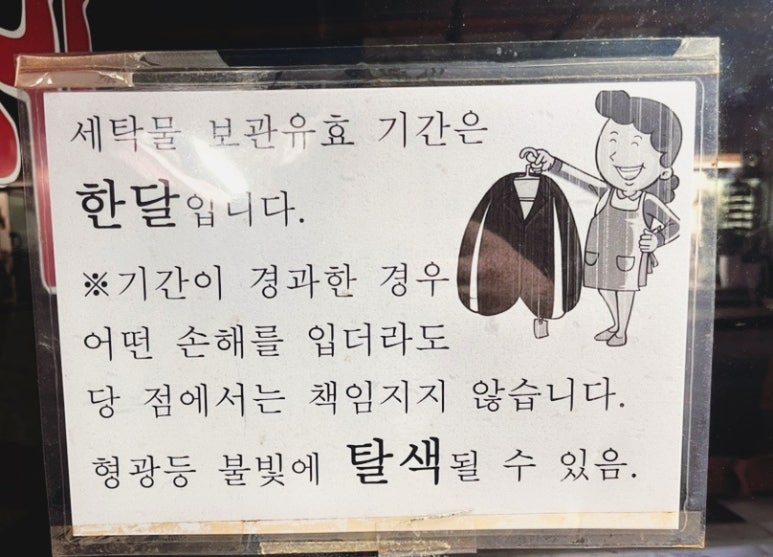 세탁물 보관유효 기간은
한달입니다.
※기간이 경과한 경우
어떤 손해를 입더라도
당 점에서는 책임지지 않습니다.
형광등 불빛에 탈색될 수 있음.